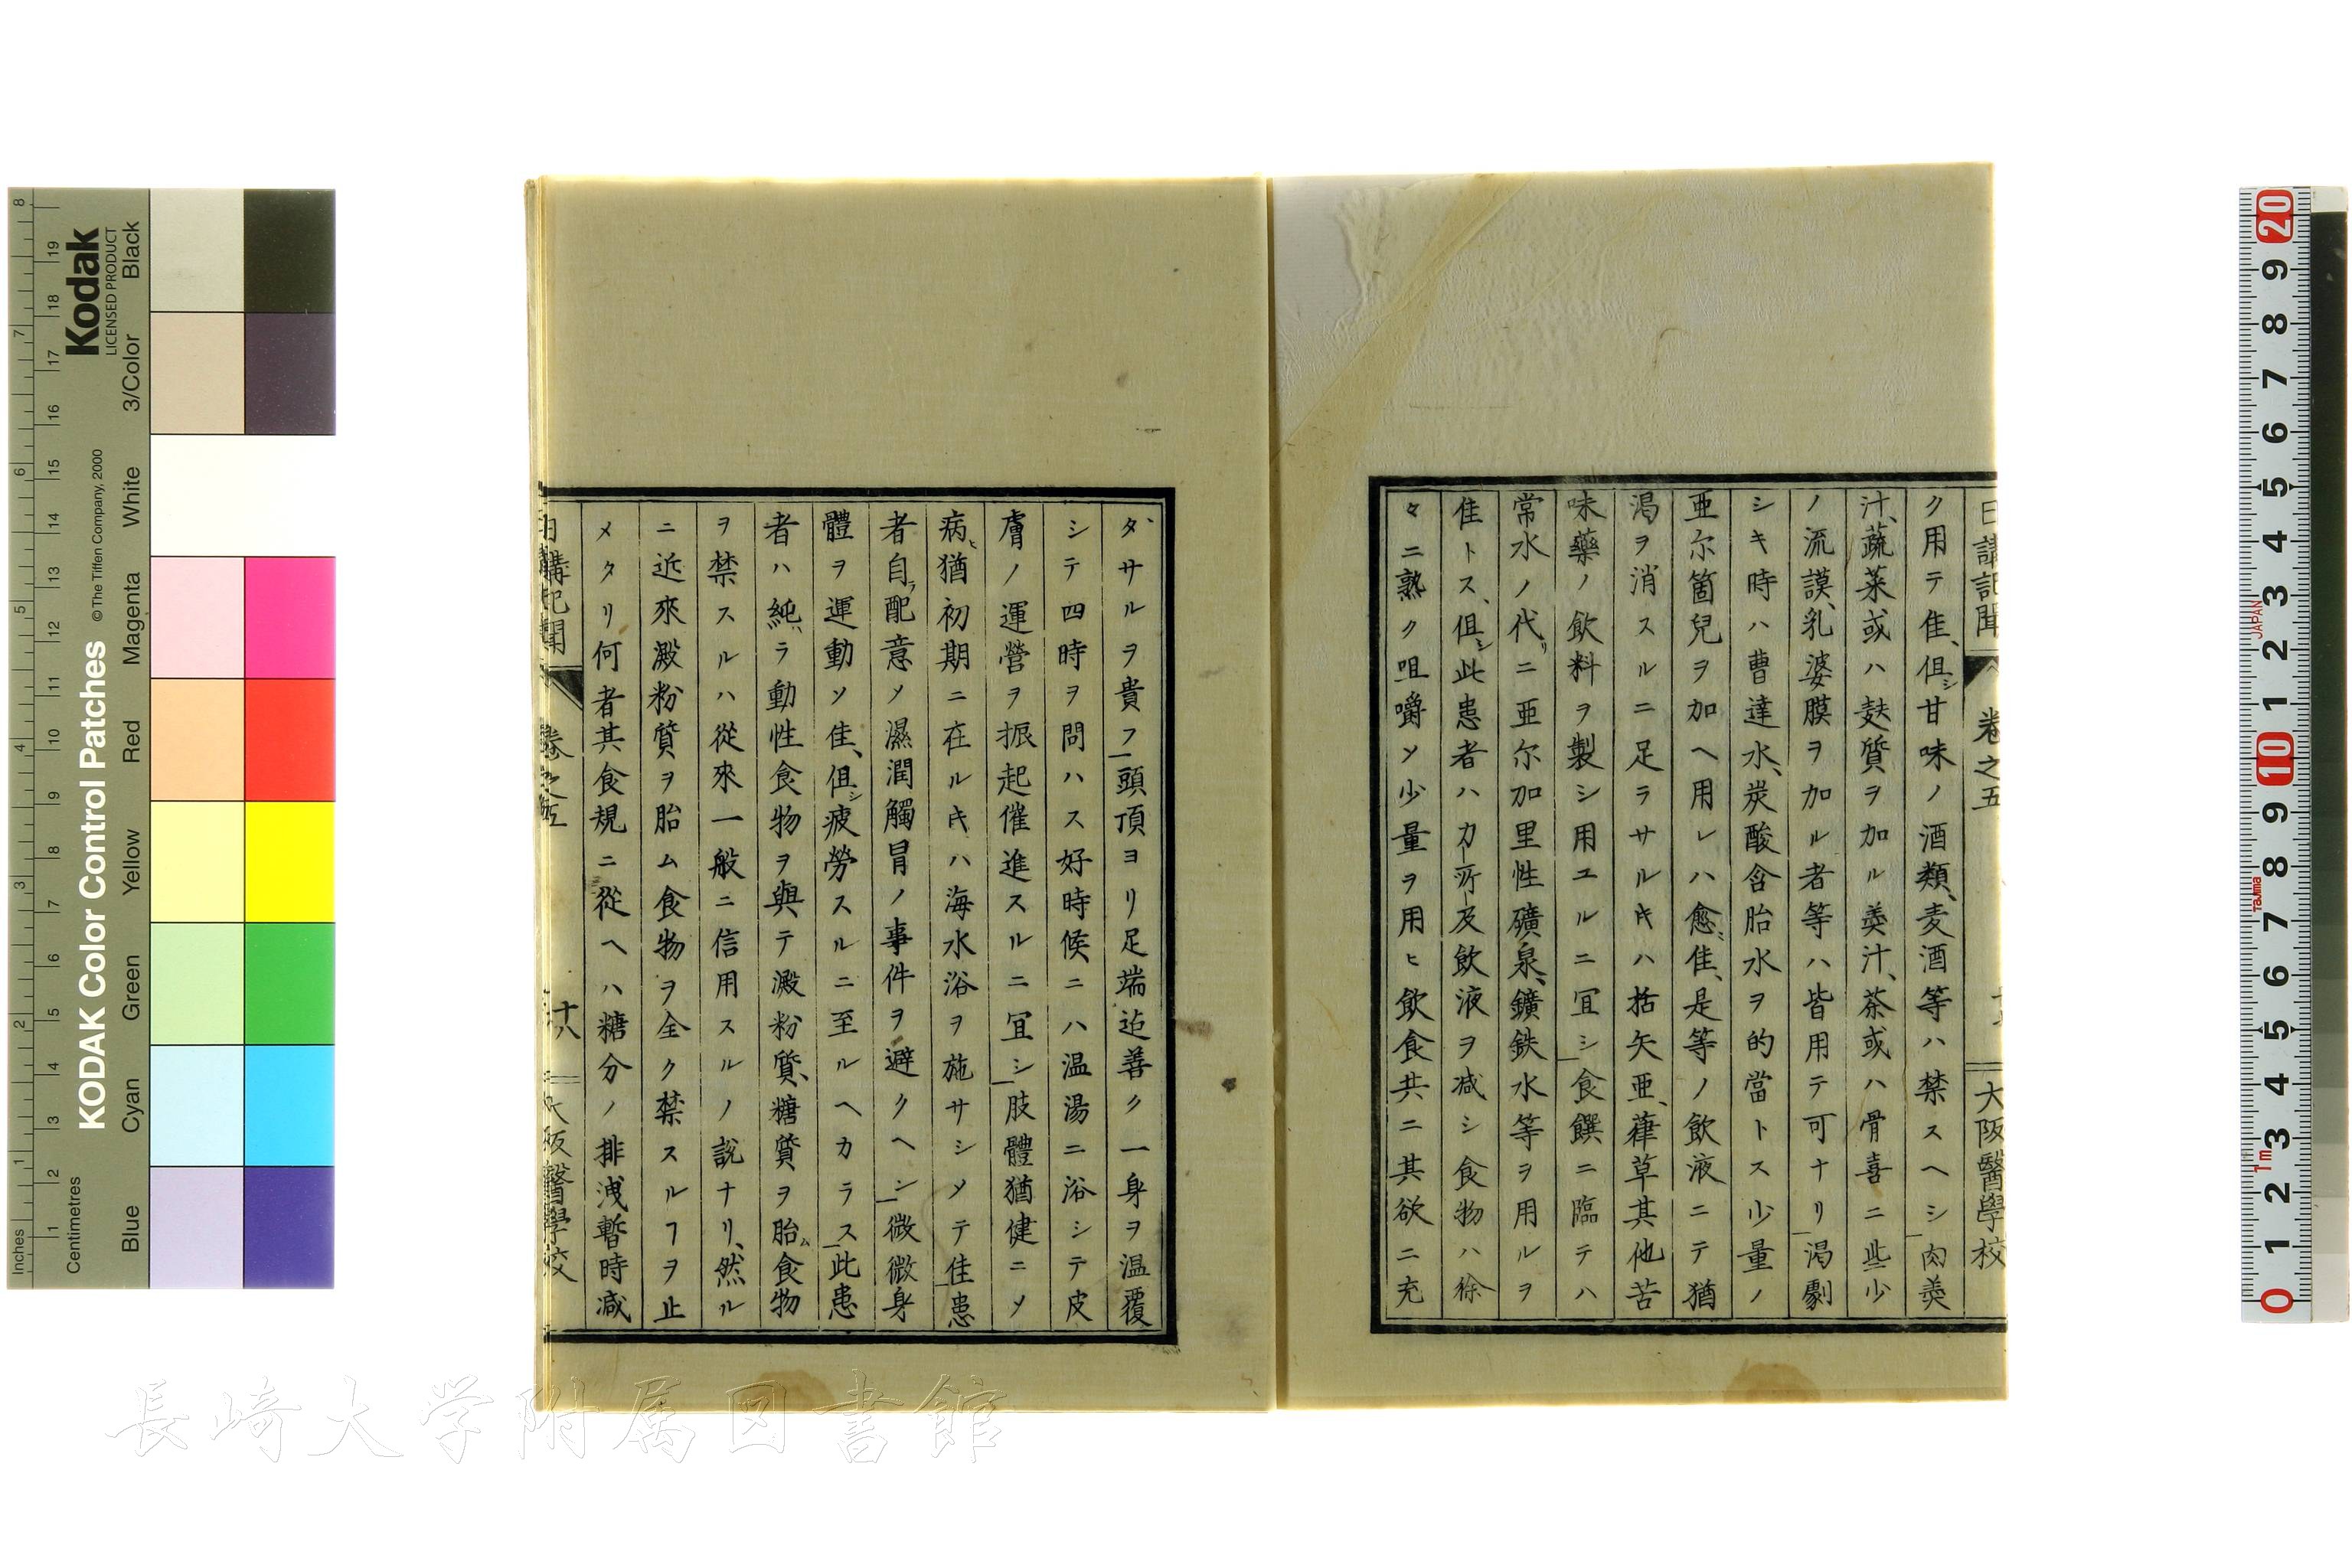 日講記聞 卷之五 大阪醫學校
ク用テ佳、但シ甘味ノ酒類、麦酒等ハ禁スヘシ_肉羮
汁、蔬菜或ハ麩質ヲ加ル羮汁、茶或ハ骨喜ニ些少
ノ流謨、乳婆膜ヲ加ル者等ハ皆用テ可ナリ_渇劇
シキ時ハ曹達水、炭酸含胎水ヲ的當トス少量ノ
亜尓箇兒ヲ加ヘ用レハ愈佳、是等ノ飲液ニテ猶
渇ヲ消スルニ足ラサルキハ括矢亜、葎草其他苦
味藥ノ飲料ヲ製シ用ユルニ冝シ_食饌ニ臨テハ
常水ノ代リニ亜尓加里性礦泉、鑛鉄水等ヲ用ルヲ
佳トス、但シ此患者ハ力所及飲液ヲ减シ食物ハ徐
々ニ熟ク咀嚼ソ少量ヲ用ヒ飲食共ニ其欲ニ充
タサルヲ貴フ_頭頂ヨリ足端迄善ク一身ヲ温覆
シテ四時ヲ問ハス好時候ニハ温湯ニ浴シテ皮
膚ノ運營ヲ振起催進スルニ冝シ_肢體猶健ニメ
病ヒ猶初期ニ在ルキハ海水浴ヲ施サシメテ佳_患
者自ラ配意メ濕潤觸冒ノ事件ヲ避クヘシ_微微身
體ヲ運動ソ佳、但シ疲勞スルニ至ルヘカラス_此患
者ハ純ハラ動性食物ヲ與テ澱粉質、糖質ヲ胎ム食物
ヲ禁スルハ從來一般ニ信用スルノ説ナリ、然ル
ニ近來澱粉質ヲ胎ム食物ヲ全ク禁スルヿヲ止
メタリ何者其食規ニ從ヘハ糖分ノ排洩暫時减
日講記聞 卷之五 十八 大阪醫學校
KODAK Color Control Patches
©The Tiffen Company, 2000
Kodak
LICENSED PRODUCT
Inches
Centimetres
Blue Cyan Green Yellow Red Magenta White 3/Color Black
JAPAN
Tajima
1m
長崎大学附属図書館